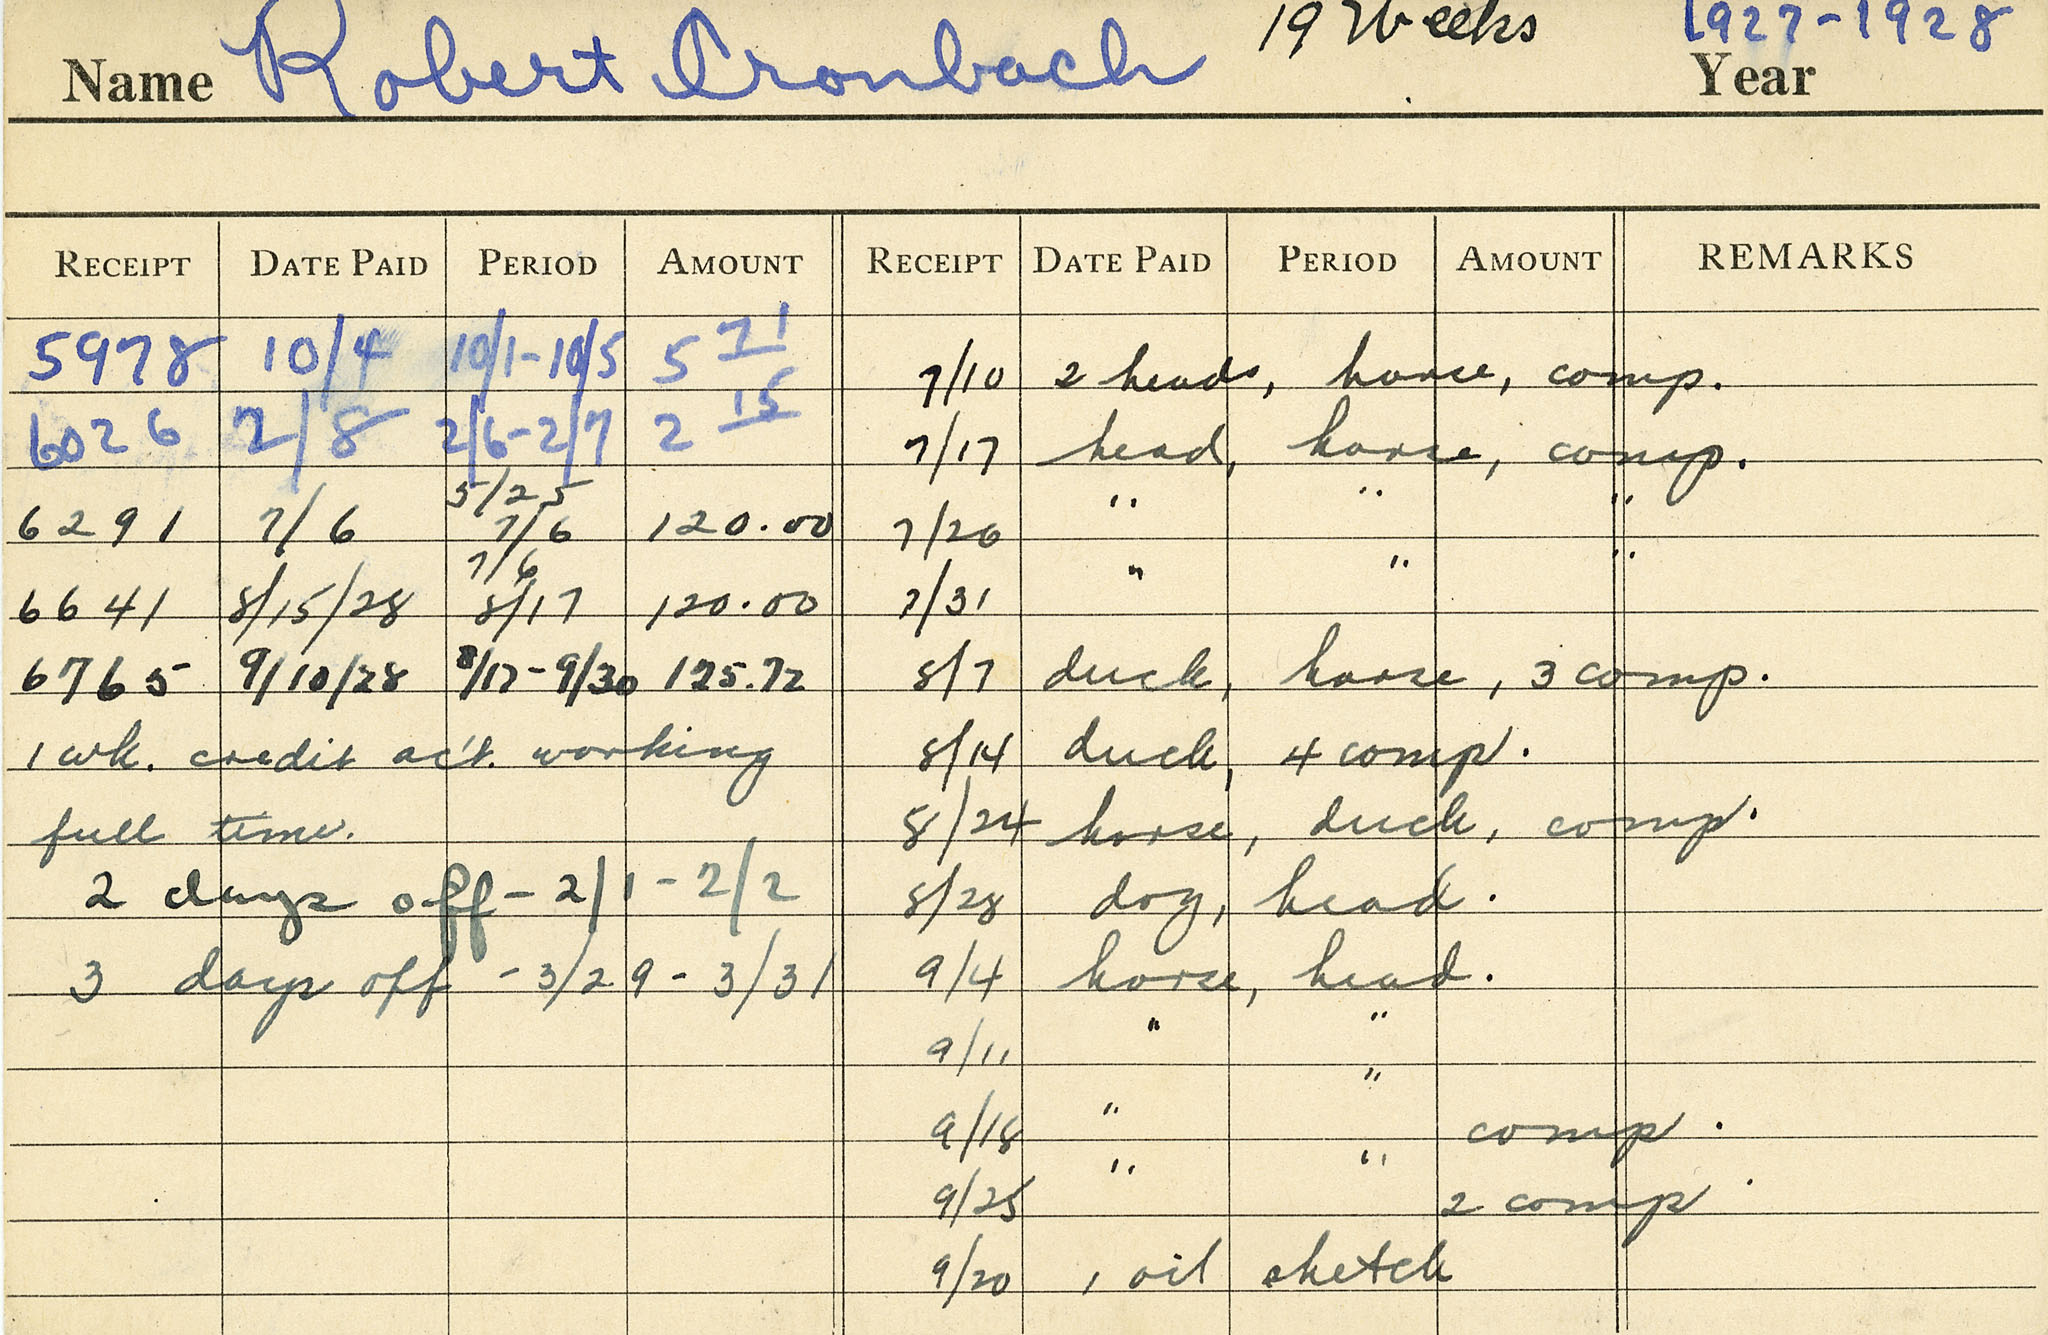 Name Robert Cronbach 19 Weeks 1927-1928 Year
RECEIPT DATE PAID PERIOD AMOUNT RECEIPT DATE PAID PERIOD AMOUNT REMARKS
5978 10/4 10/1-10/5 5 71 7/10 2 heads, horse, comp.
6026 2/8 2/6-2/7 2 15 7/17 head, horse, comp.
6291 7/6 5/25 7/6 120.00 7/20 " " "
6641 8/15/28 7/6 8/17 120.00 7/31 " " "
6765 9/10/28 8/17-9/30 125.72 8/7 duck, horse, 3 comp.
1 wk. credit ac't. working 8/14 duck, 4 comp.
full time. 8/24 horse, duck, comp.
2 days off - 2/1 - 2/2 8/28 dog, head.
3 days off - 3/29 - 3/31 9/4 horse, head.
9/11 " "
9/18 " " comp.
9/25 " " 2 comp.
9/20 1 oil sketch